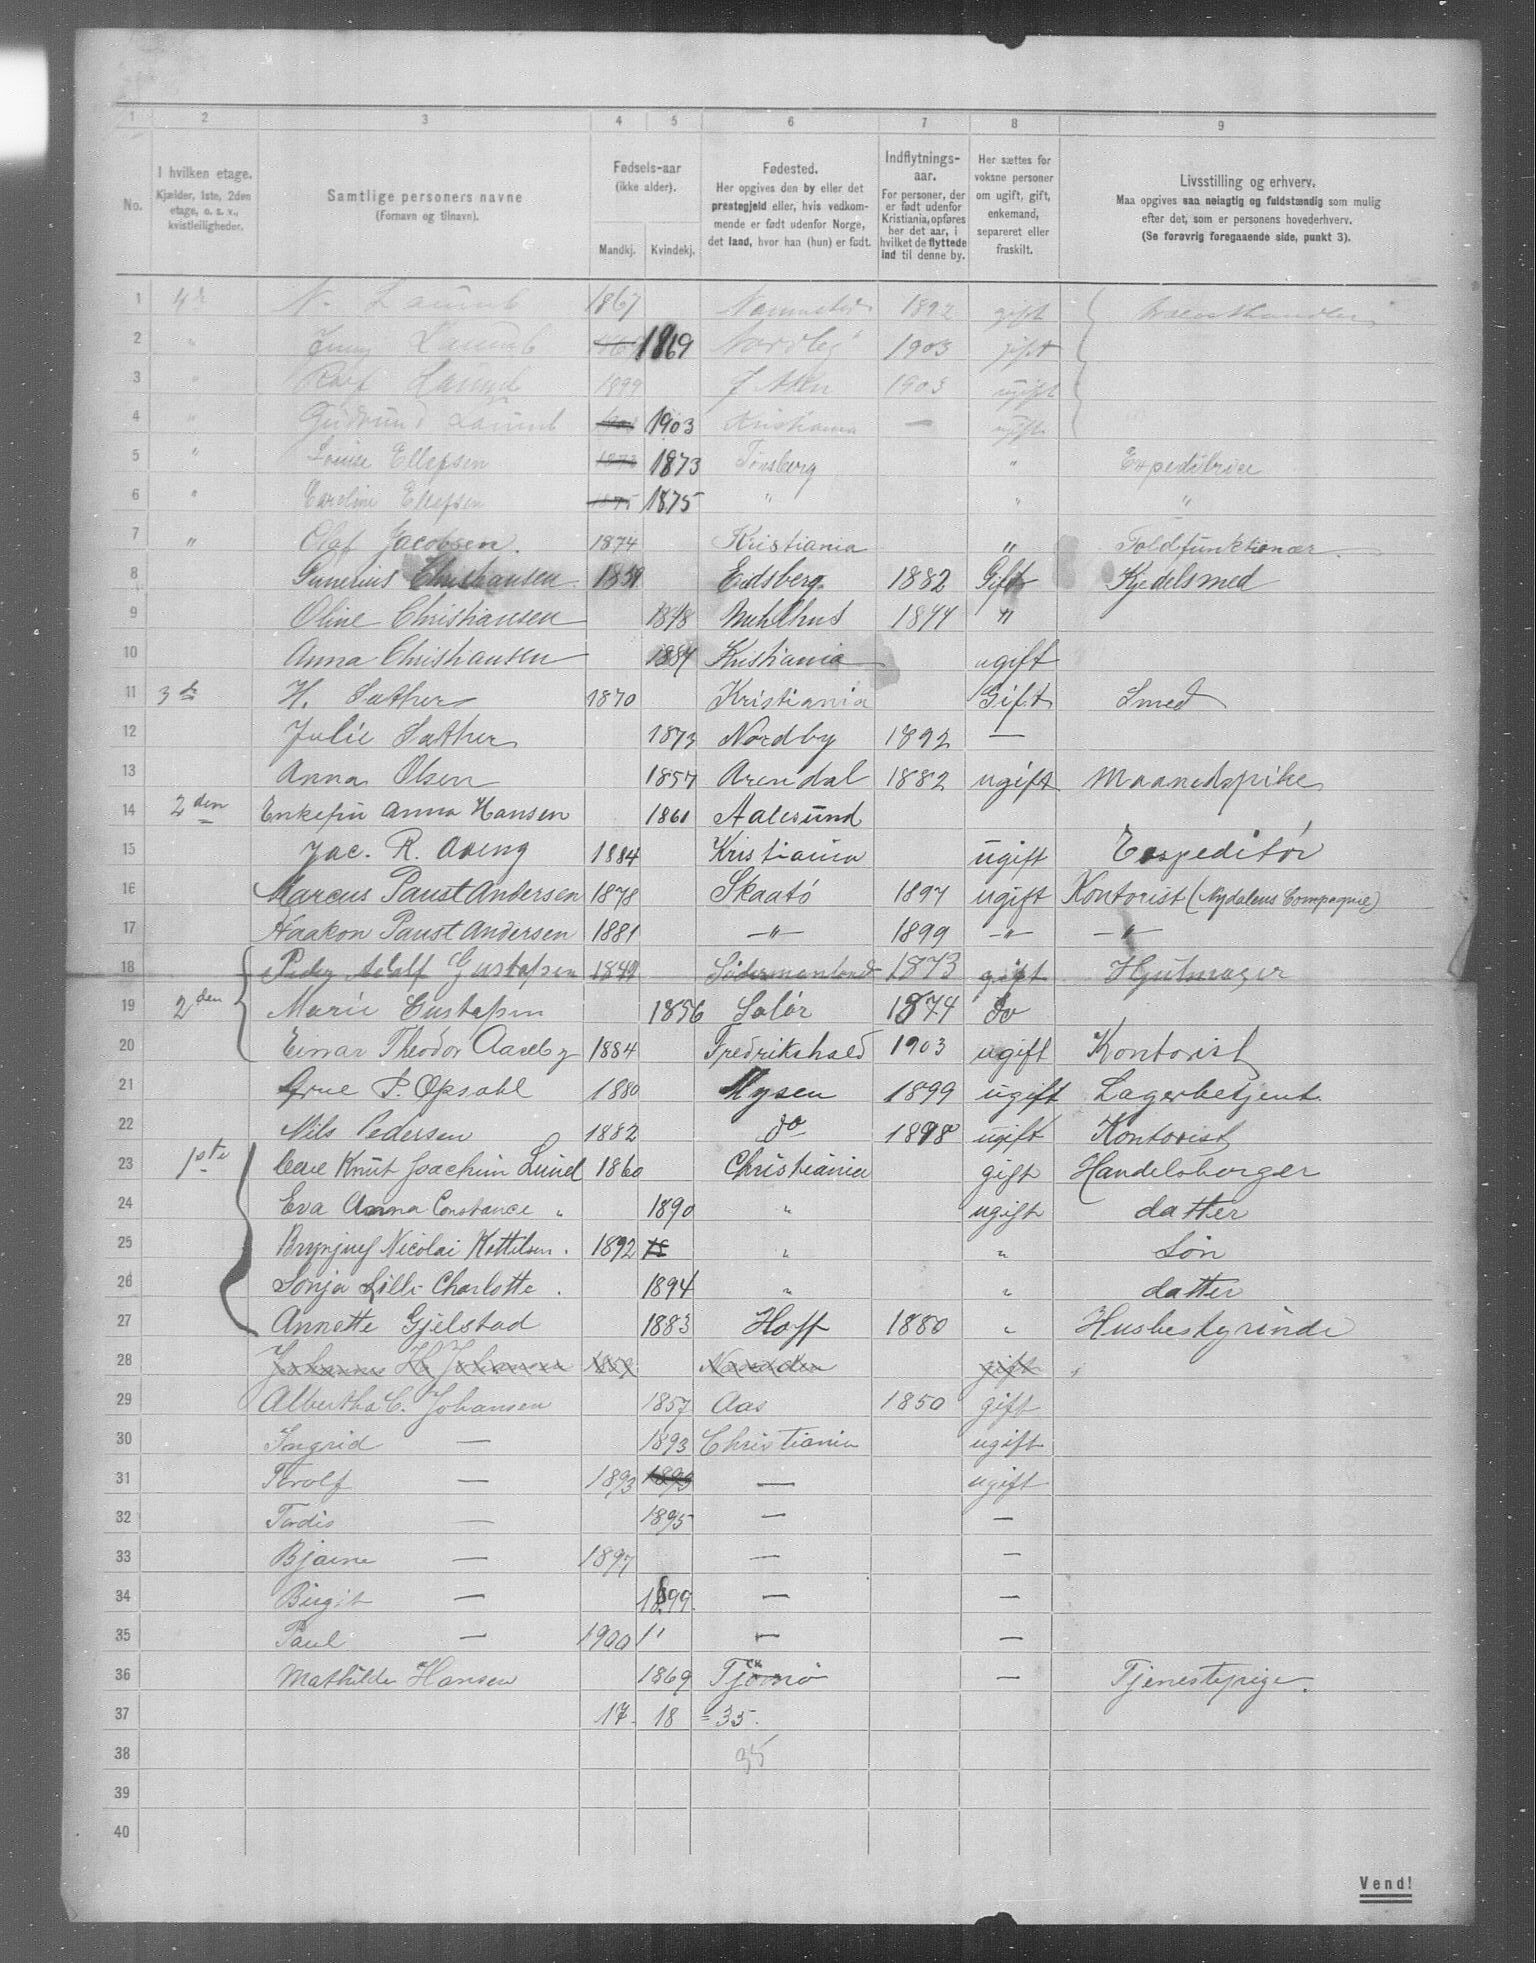 1 2 3 4 5 6 7 8 9
No.
I hvilken etage.
Kjælder, 1ste, 2den
etage, o. s. v.,
kvistleiligheder.
Samtlige personers navne
(Fornavn og tilnavn).
Fødsels-aar
(ikke alder).
Mandkj. Kvindekj.
Fødested.
Her opgives den by eller det
prestegjeld eller, hvis vedkom-
mende er født udenfor Norge,
det land, hvor han (hun) er født.
Indflytnings-
aar.
For personer, der
er født udenfor
Kristiania, opføres
her det aar, i
hvilket de flyttede
ind til denne by.
Her sættes for
voksne personer
om ugift, gift,
enkemand,
separeret eller
fraskilt.
Livsstilling og erhverv.
Maa opgives saa nøiagtig og fuldstændig som mulig
efter det, som er personens hovederhverv.
(Se forøvrig foregaaende side, punkt 3).
1 N. 1867 1892 gift
2 " Jenny 1869 1903 gift
3 " Rolf 1899 1903 ugift
4 " Gudrun 1903 Kristiania — ugift
5 " Louise Ellefsen 1873 1873 Tønsberg " Expeditrice
6 " Caroline Ellefsen 1875 1875 " " "
7 " Olaf Jacobsen. 1874 Kristiania " Toldfunktionær.
8 Gunerius Christiansen 1859 Eidsberg 1882 Gift Kjedelsmed
9 Oline Christiansen 1848 1874 "
10 Anna Christiansen 1884 Kristiania ugift
11 3de H. Sæther 1870 Kristiania Gift Smed
12 Julie Sæther 1873 Nordby 1892 —
13 Anna Olsen 1857 Arendal 1882 ugift Maanedspike
14 2den Enkefru Anna Hansen 1861 Aalesund
15 Jac. R. 1884 Kristiania ugift Expeditør
16 Marcus Paust Andersen 1878 Skaatø 1897 ugift Kontorist (Nydalens Compagnie)
17 Haakon Paust Andersen 1881 —"— 1899 —"— —"—
18 Peder Adolf Gustafsen 1849 Södermanland 1873 gift Hjulmager
19 2den Marie Gustafsen 1856 Solør 1874 do
20 Einar Theodor Aareby 1884 Fredrikshald 1903 ugift Kontorist
21 P. Opsahl 1880 Mysen 1899 ugift Lagerbetjent.
22 Nils Pedersen 1882 do 1898 ugift Kontorist
23 1ste Knut Joachim Lund 1860 Christiania gift Handelsborger
24 Eva Anna Constance " 1890 " ugift datter
25 Brynjulf Nicolai Kettelsen. 1892 18 " " Søn
26 Sonja Lilli Charlotte . 1894 " " datter
27 Annette Gjelstad 1883 Hoff 1880 " Husbestyrinde
28 Johannes H. Johansen 1852 gift
29 Albertha C. Johansen 1857 Aas 1850 gift
30 Ingrid — 1893 Christiania ugift
31 Torolf — 1893 1893 — ugift
32 Tordis — 1895 — —
33 Bjarne — 1897 — —
34 Birgit — 1899. — —
35 Paul — 1900 1' — —
36 Mathilde Hansen 1869 Tjømø — Tjenestepige.
37 17. 18 = 35.
38 35
39
40
Vend!